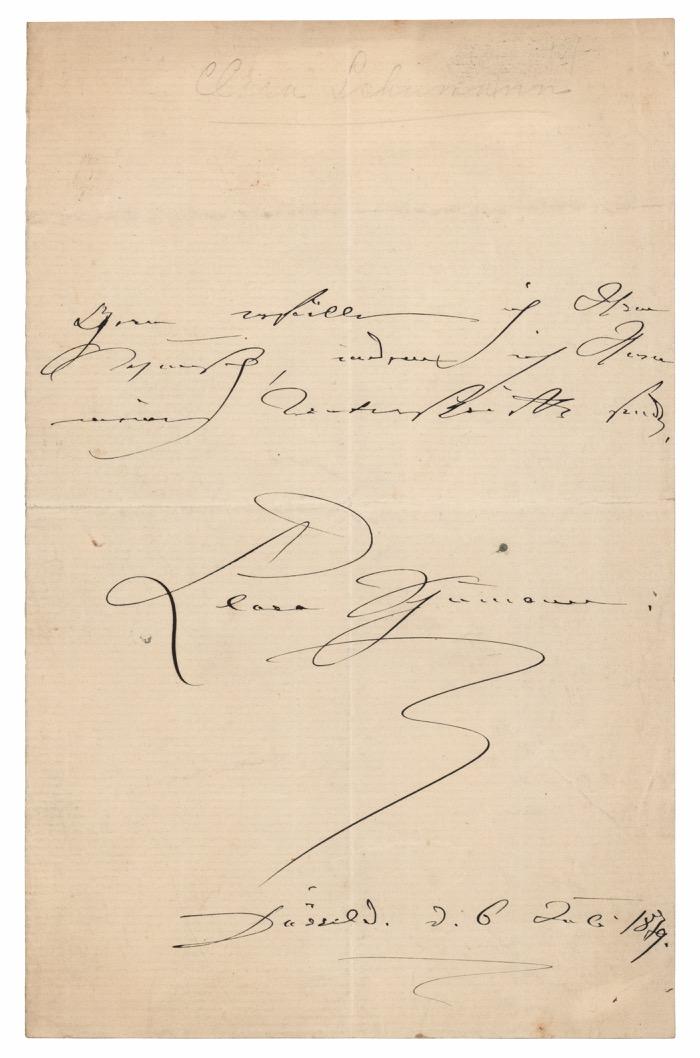 Clara Schumann
Gern erfülle ich Ihren
Wunsch, indem ich Ihnen
meine Unterschrift sende,
Clara Schumann.
Düsseld. d. 6 Juli